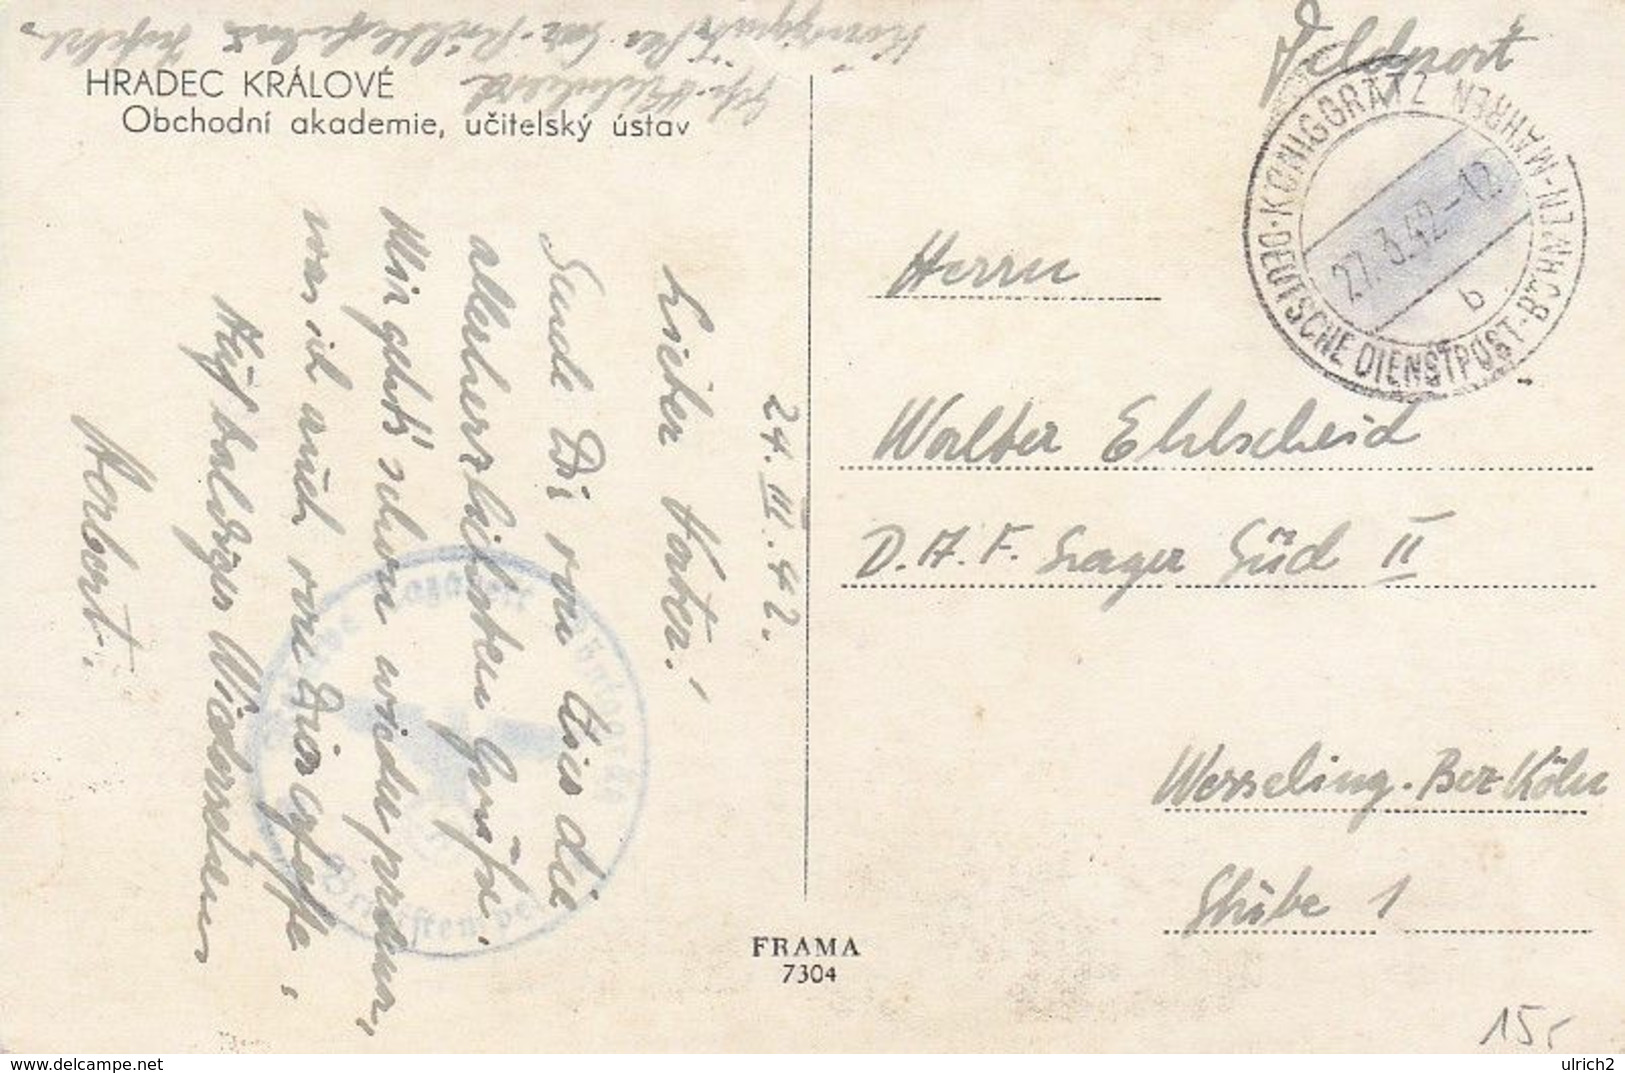 Feldpost
HRADEC KRÁLOVÉ
Obchodní akademie, učitelský ústav
KÖNIGGRÄTZ
BÖHMEN-MÄHREN
DEUTSCHE DIENSTPOST
27.3.42-12
b
24.III.42.
Lieber Vater!
Sende Dir von hier die
allerherzlichsten Grüße.
Mir geht's schon wieder prima,
was ich auch von Dir hoffe.
Auf baldiges Wiedersehen
Norbert.
Herrn
Walter Ehlscheid
D.A.F. Lager Süd II
Wesseling. Bez Köln
Stube 1
FRAMA
7304
15,-
delcampe.net
ulrich2